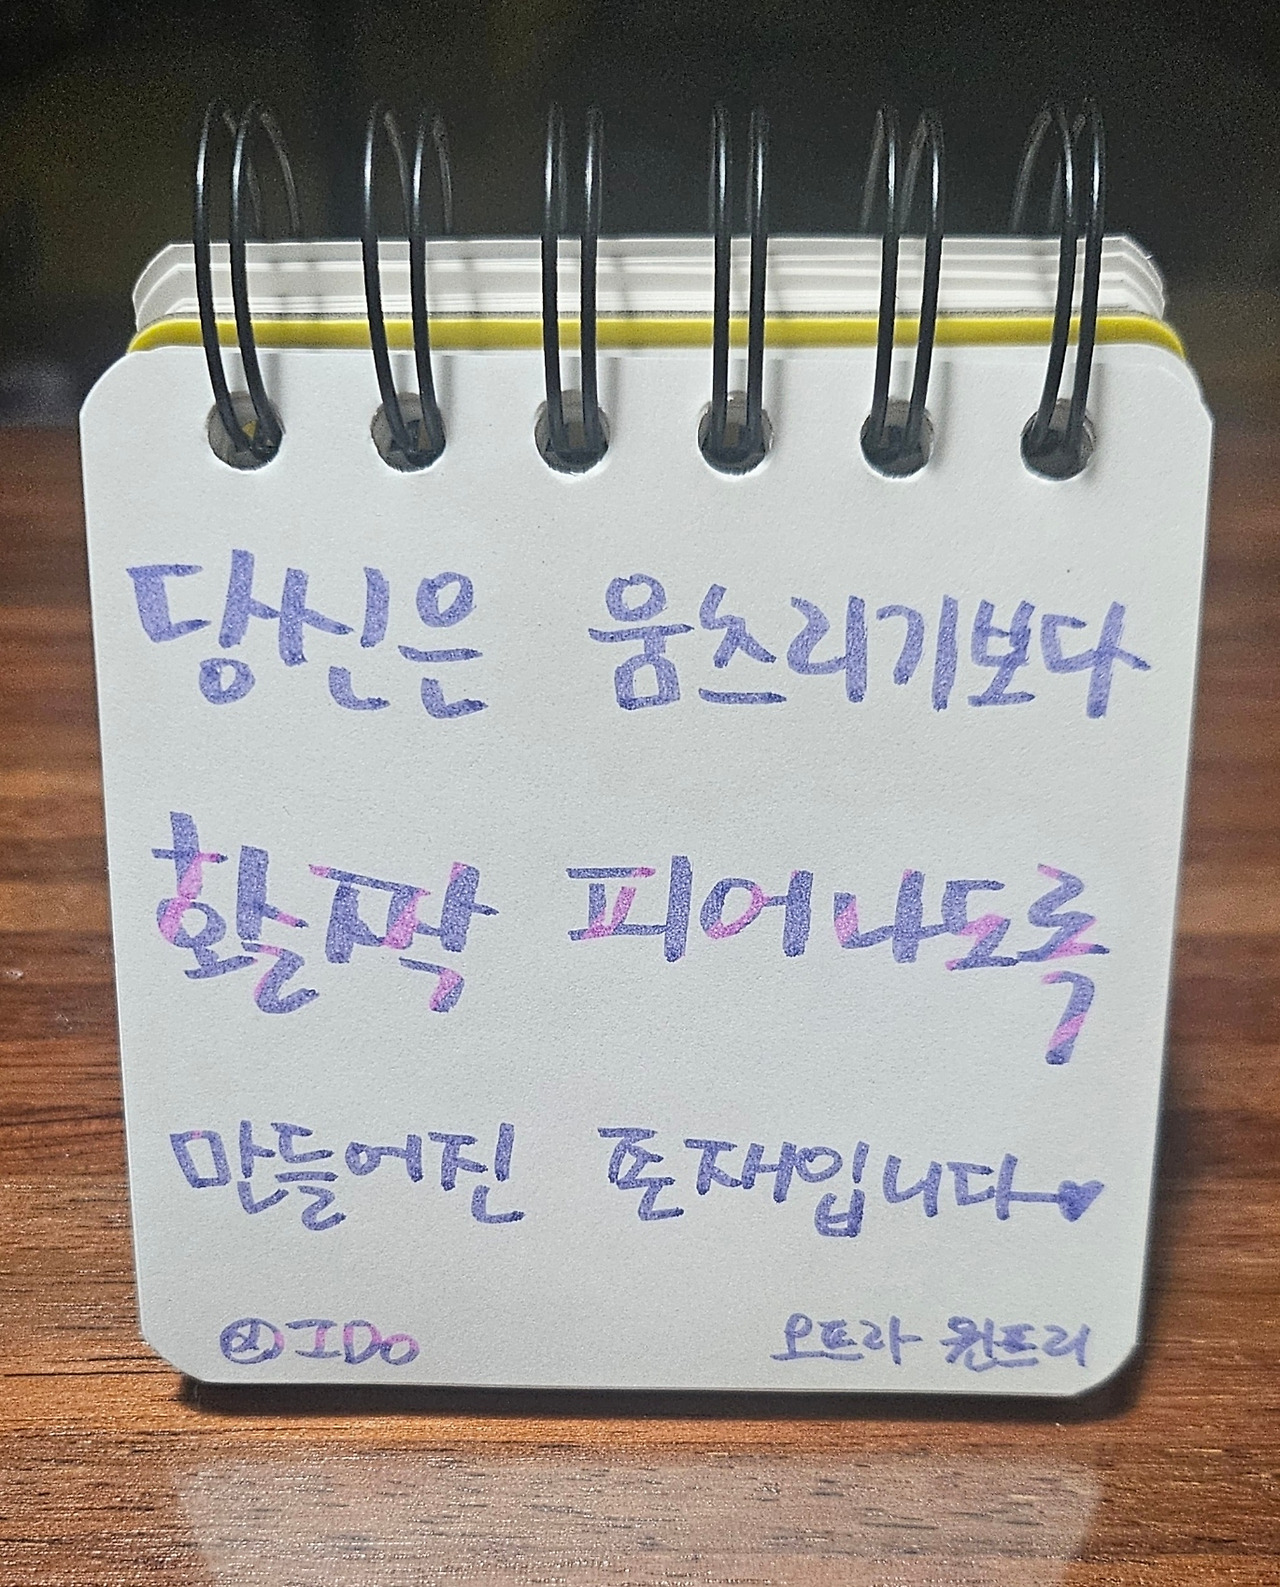 당신은 움츠리기보다
활짝 피어나도록
만들어진 존재입니다
IDo 오프라 윈프리